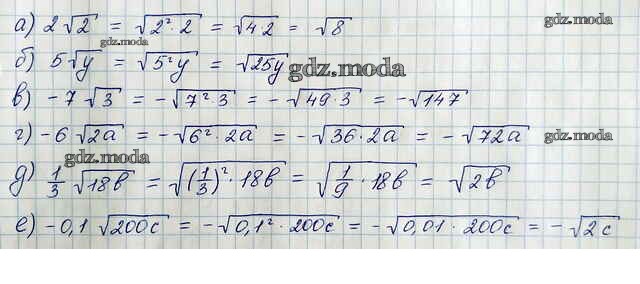 а) 2√2 = √(2²·2) = √(4·2) = √8
gdz.moda
gdz.moda
б) 5√y = √(5²y) = √(25y)
gdz.moda
в) -7√3 = -√(7²·3) = -√(49·3) = -√147
г) -6√(2a) = -√(6²·2a) = -√(36·2a) = -√(72a)
gdz.moda
gdz.moda
д) 1/3 √(18в) = √((1/3)²·18в) = √(1/9·18в) = √(2в)
е) -0,1 √(200c) = -√(0,1²·200c) = -√(0,01·200c) = -√(2c)